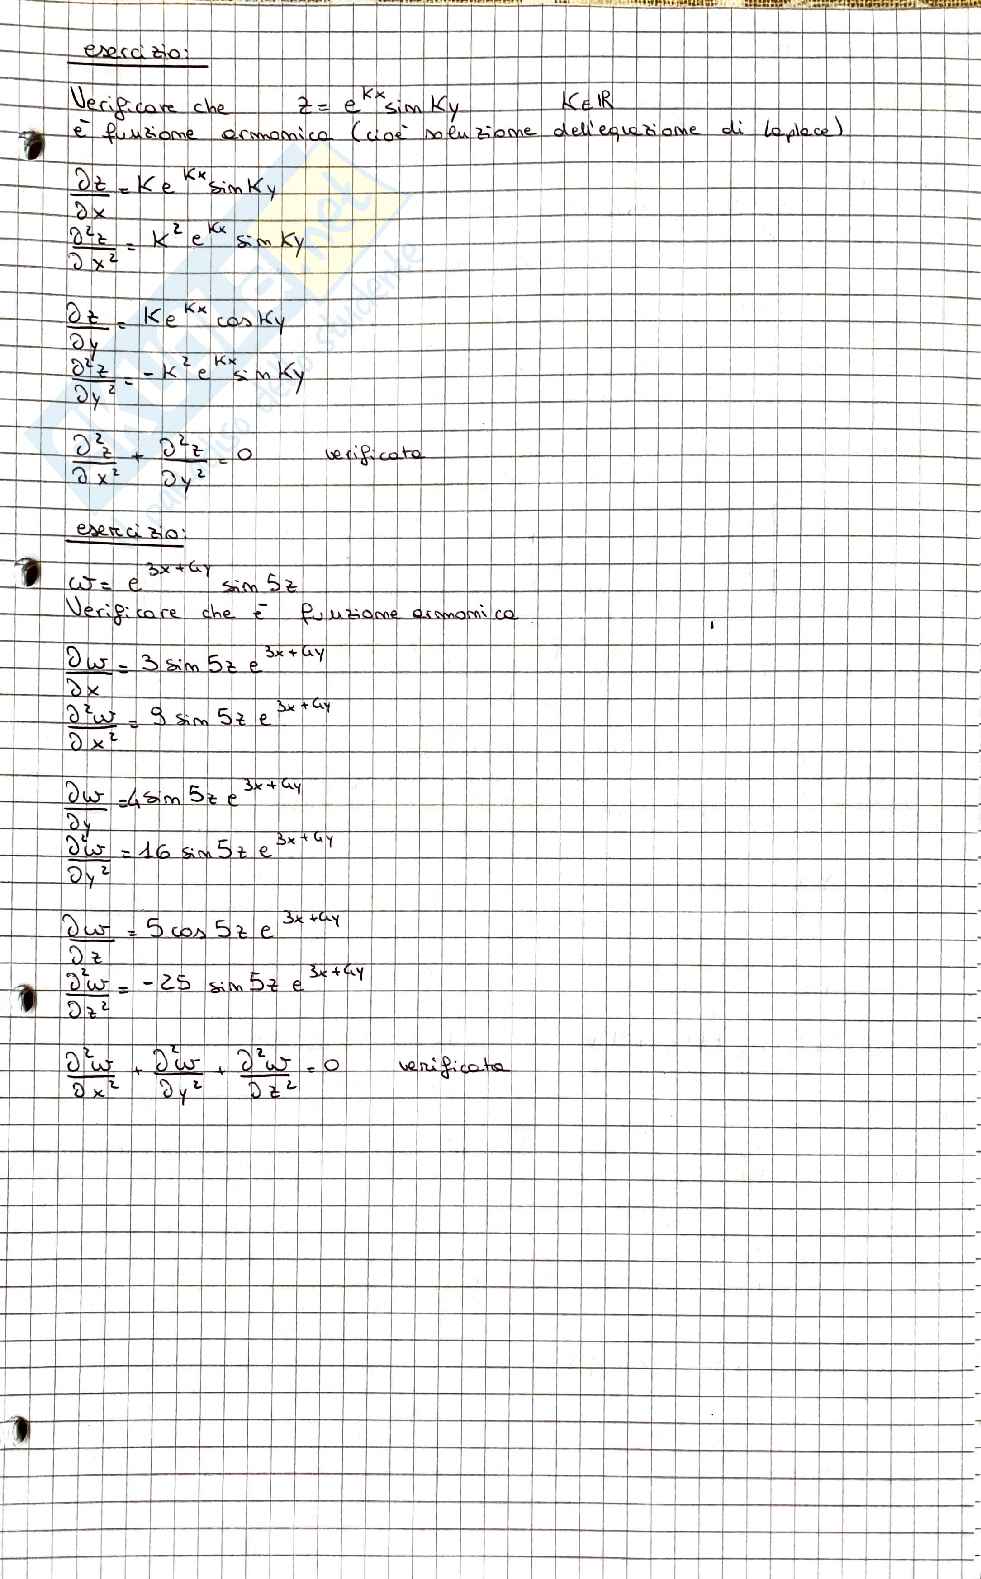 esercizio:
Verificare che z = e^{Kx} sin Ky K∈ℝ
è funzione armonica (cioè soluzione dell'equazione di Laplace)
∂z/∂x = K e^{Kx} sin Ky
∂²z/∂x² = K² e^{Kx} sin Ky
∂z/∂y = K e^{Kx} cos Ky
∂²z/∂y² = -K² e^{Kx} sin Ky
∂²z/∂x² + ∂²z/∂y² = 0 verificata
esercizio:
w = e^{3x+4y} sin 5z
Verificare che è funzione armonica
∂w/∂x = 3 sin 5z e^{3x+4y}
∂²w/∂x² = 9 sin 5z e^{3x+4y}
∂w/∂y = 4 sin 5z e^{3x+4y}
∂²w/∂y² = 16 sin 5z e^{3x+4y}
∂w/∂z = 5 cos 5z e^{3x+4y}
∂²w/∂z² = -25 sin 5z e^{3x+4y}
∂²w/∂x² + ∂²w/∂y² + ∂²w/∂z² = 0 verificata